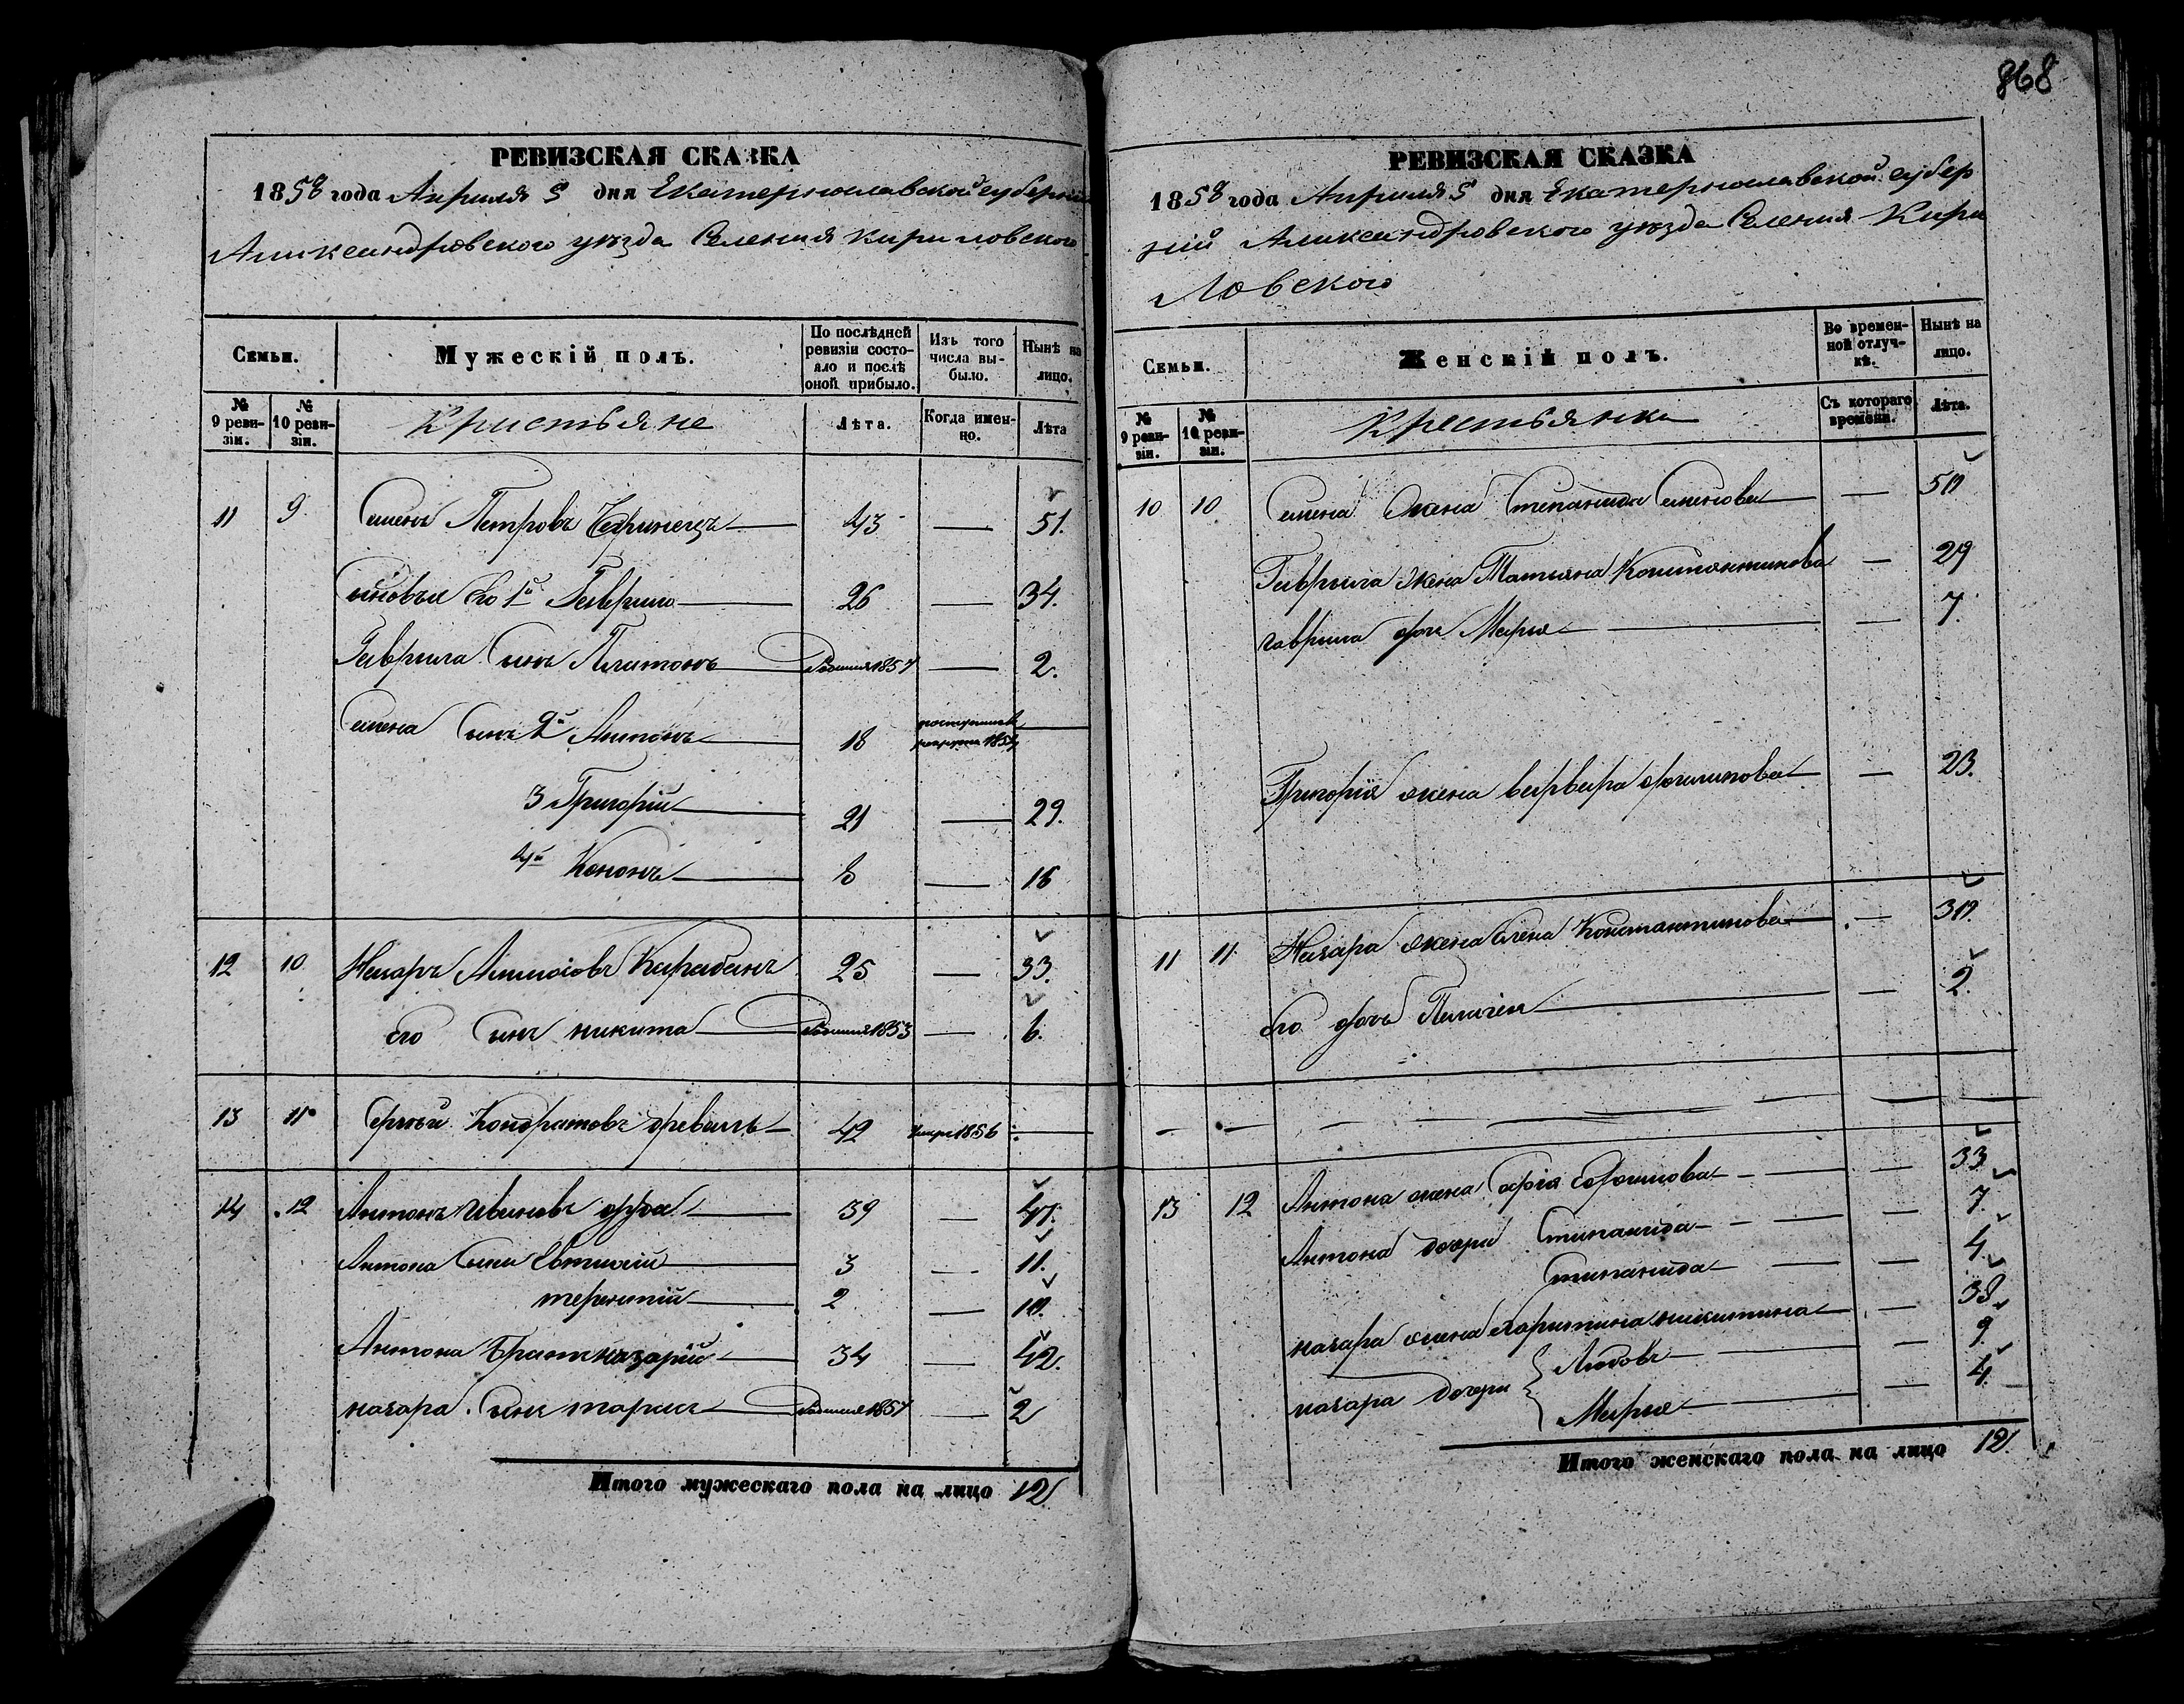 868
РЕВИЗСКАЯ СКАЗКА
1858 года Апреля 5 дня Екатеринославской губернии
Александровского уезда Селения Кириловского
Семьи.
Мужескій полъ.
По послѣдней ревизіи состояло и послѣ оной прибыло.
Изъ того числа выбыло.
Нынѣ на лицо.
№ 9 ревизіи.
№ 10 ревизіи.
Кристьяне
Лѣта.
Когда именно.
Лѣта
11 9 Семенъ Петровъ 43 — 51.
Сыновья его 1й Гаврило 26 — 34.
Гаврила Сынъ Платонъ 1857 — 2.
Семена Сынъ 2й Антонъ 18
3 Григорій 21 — 29.
4й Кононъ 8 — 16
12 10 Назаръ Карабанъ 25 — 33.
его Сынъ никита 1853 — 6.
13 11 Сергѣй Кондратовъ 42 1856 —
14 12 Антонъ Ивановъ 39 — 47.
Антона Сыны Евтихій 3 — 11.
терентій 2 — 10.
Антона Братъ назарій 34 — 42.
назара Сынъ 1857 — 2
Итого мужескаго пола на лицо 12
РЕВИЗСКАЯ СКАЗКА
1858 года Апреля 5 дня Екатеринославской губер
ніи Александровского уезда Селения Кири
Ловского
Семьи.
Женскій полъ.
Во временной отлучкѣ.
Нынѣ на лицо.
№ 9 ревизіи.
№ 10 ревизіи.
Крестьянка
Съ котораго времени.
Лѣта.
10 10 Семена Жена Степанида Семенова — 50
Гаврила Жена Татьяна Константинова — 29
гаврила дочь Марья — 7.
Григорія жена варвара — 23.
11 11 Назара жена Елена Константинова — 30.
Его дочь Пелагея — 2.
13 12 Антона жена Ефимова — 33
Антона дочери Степанида — 7.
Степанида — 4
назара жена Харитина никитина — 38
назара дочери Любовь — 9
Марья — 4
Итого женскаго пола на лицо 12.